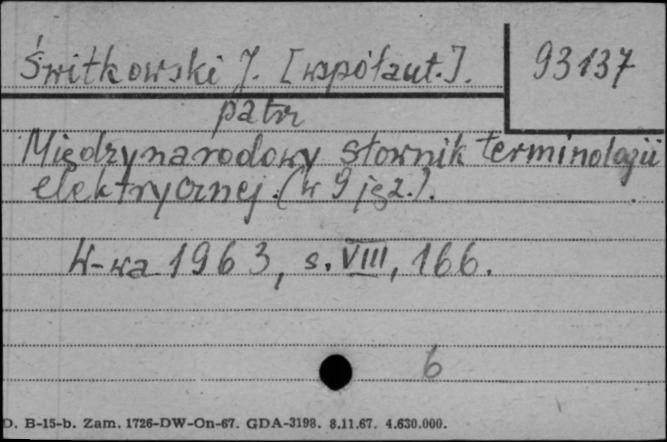 Świtkowski J. [współaut.]. 93137
patrz
Międzynarodowy słownik terminologii
elektrycznej. (w 9 jęz.).
W-wa 1963, s. VIII, 166.
6
D. B-15-b. Zam. 1726-DW-On-67. GDA-3198. 8.11.67. 4.630.000.